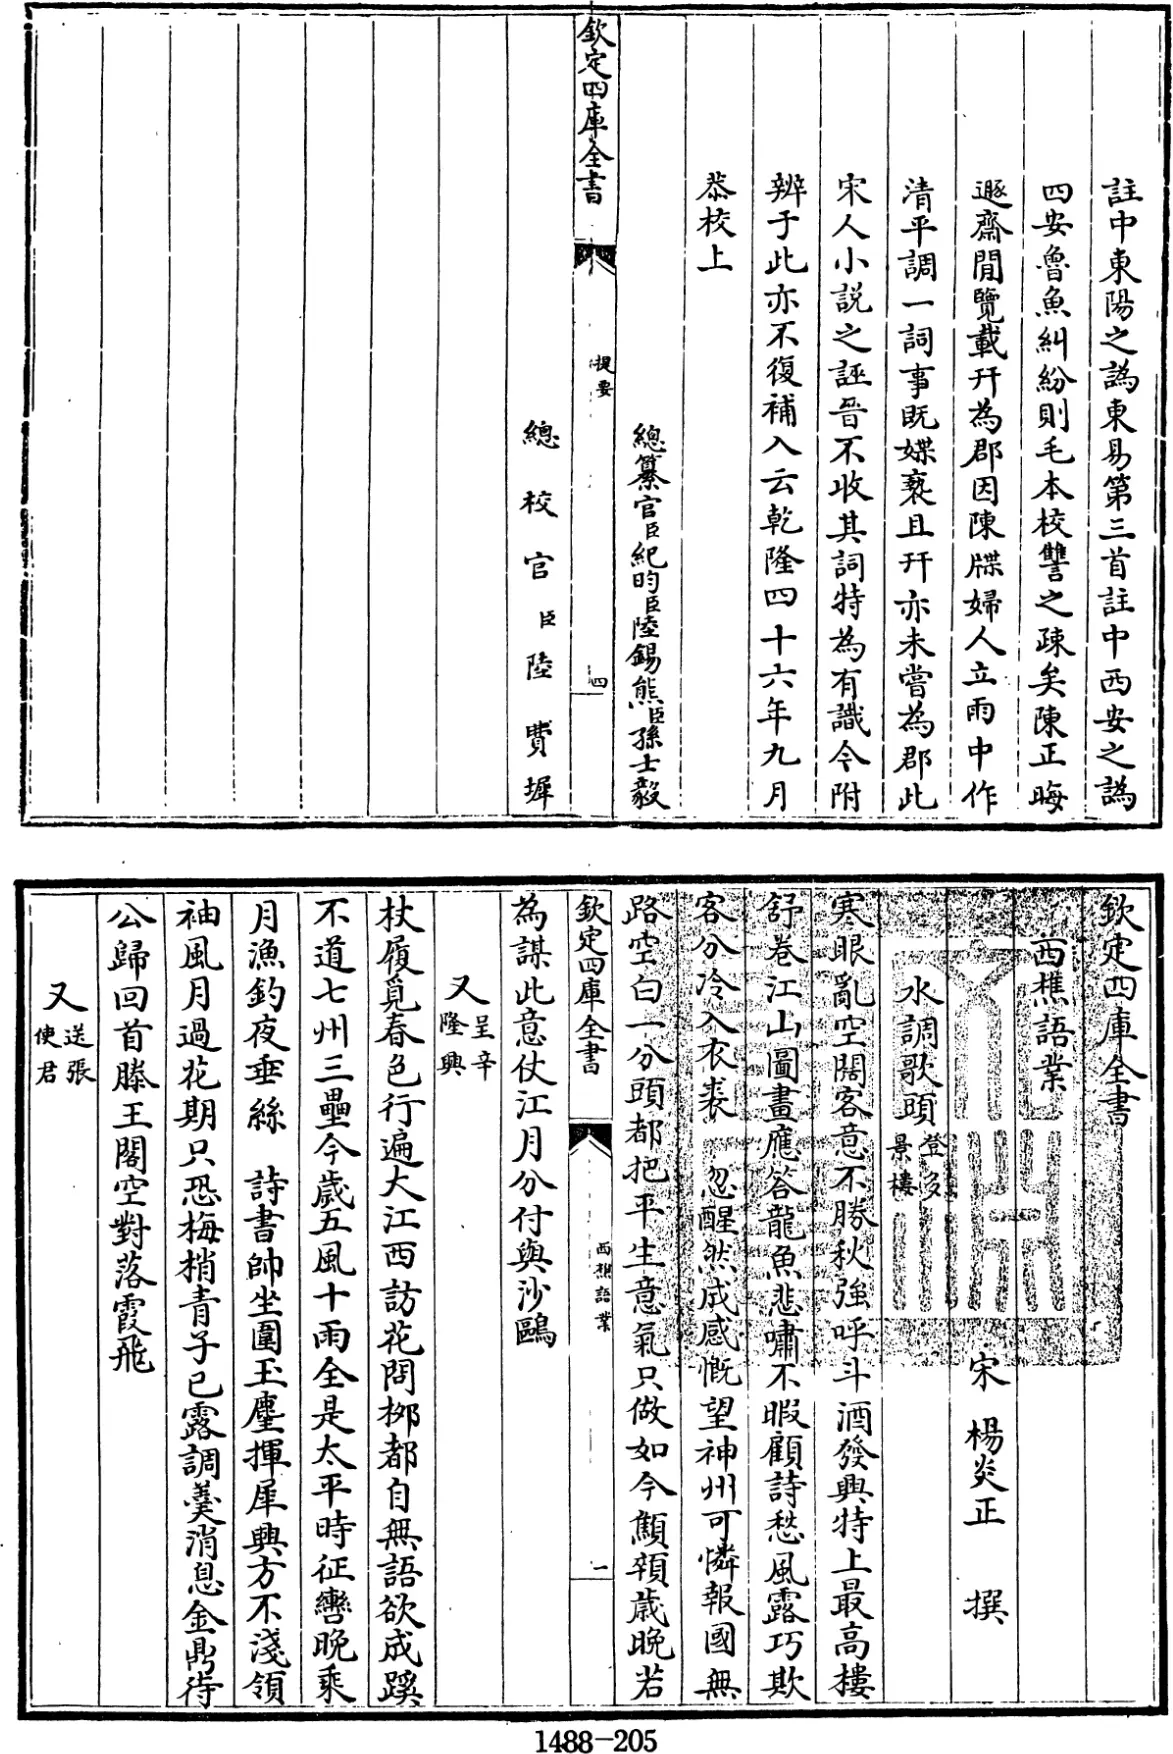 註中東陽之譌東易第三首註中西安之譌
四安魯魚糾紛則毛本校讐之疎矣陳正晦
遯齋閒覽載幵為郡因陳牒婦人立雨中作
清平調一詞事既媟褻且幵亦未嘗為郡此
宋人小説之誣晉不收其詞特為有識今附
辨于此亦不復補入云乾隆四十六年九月
恭校上
總纂官臣紀昀臣陸錫熊臣孫士毅
欽定四庫全書
提要
四
總校官臣陸費墀
欽定四庫全書
西樵語業
宋 楊炎正 撰
水調歌頭 登多景樓
寒眼亂空闊客意不勝秋強呼斗酒發興特上最高樓
舒卷江山圖畫應答龍魚悲嘯不暇顧詩愁風露巧欺
客分冷入衣裘 忽醒然成感慨望神州可憐報國無
路空白一分頭都把平生意氣只做如今顦顇歲晚若
欽定四庫全書
西樵語業
一
為謀此意仗江月分付與沙鷗
又 呈辛隆興
杖屨覓春色行遍大江西訪花問桞都自無語欲成蹊
不道七州三壘今歳五風十雨全是太平時征轡晚乘
月漁釣夜垂絲 詩書帥坐圍玉麈揮犀興方不淺領
袖風月過花期只恐梅梢青子已露調羹消息金鼎待
公歸回首滕王閣空對落霞飛
又 送張使君
1488-205